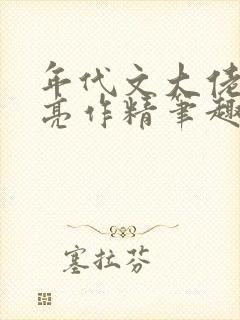 年代文大佬
亮作精笔趣
塞拉芬